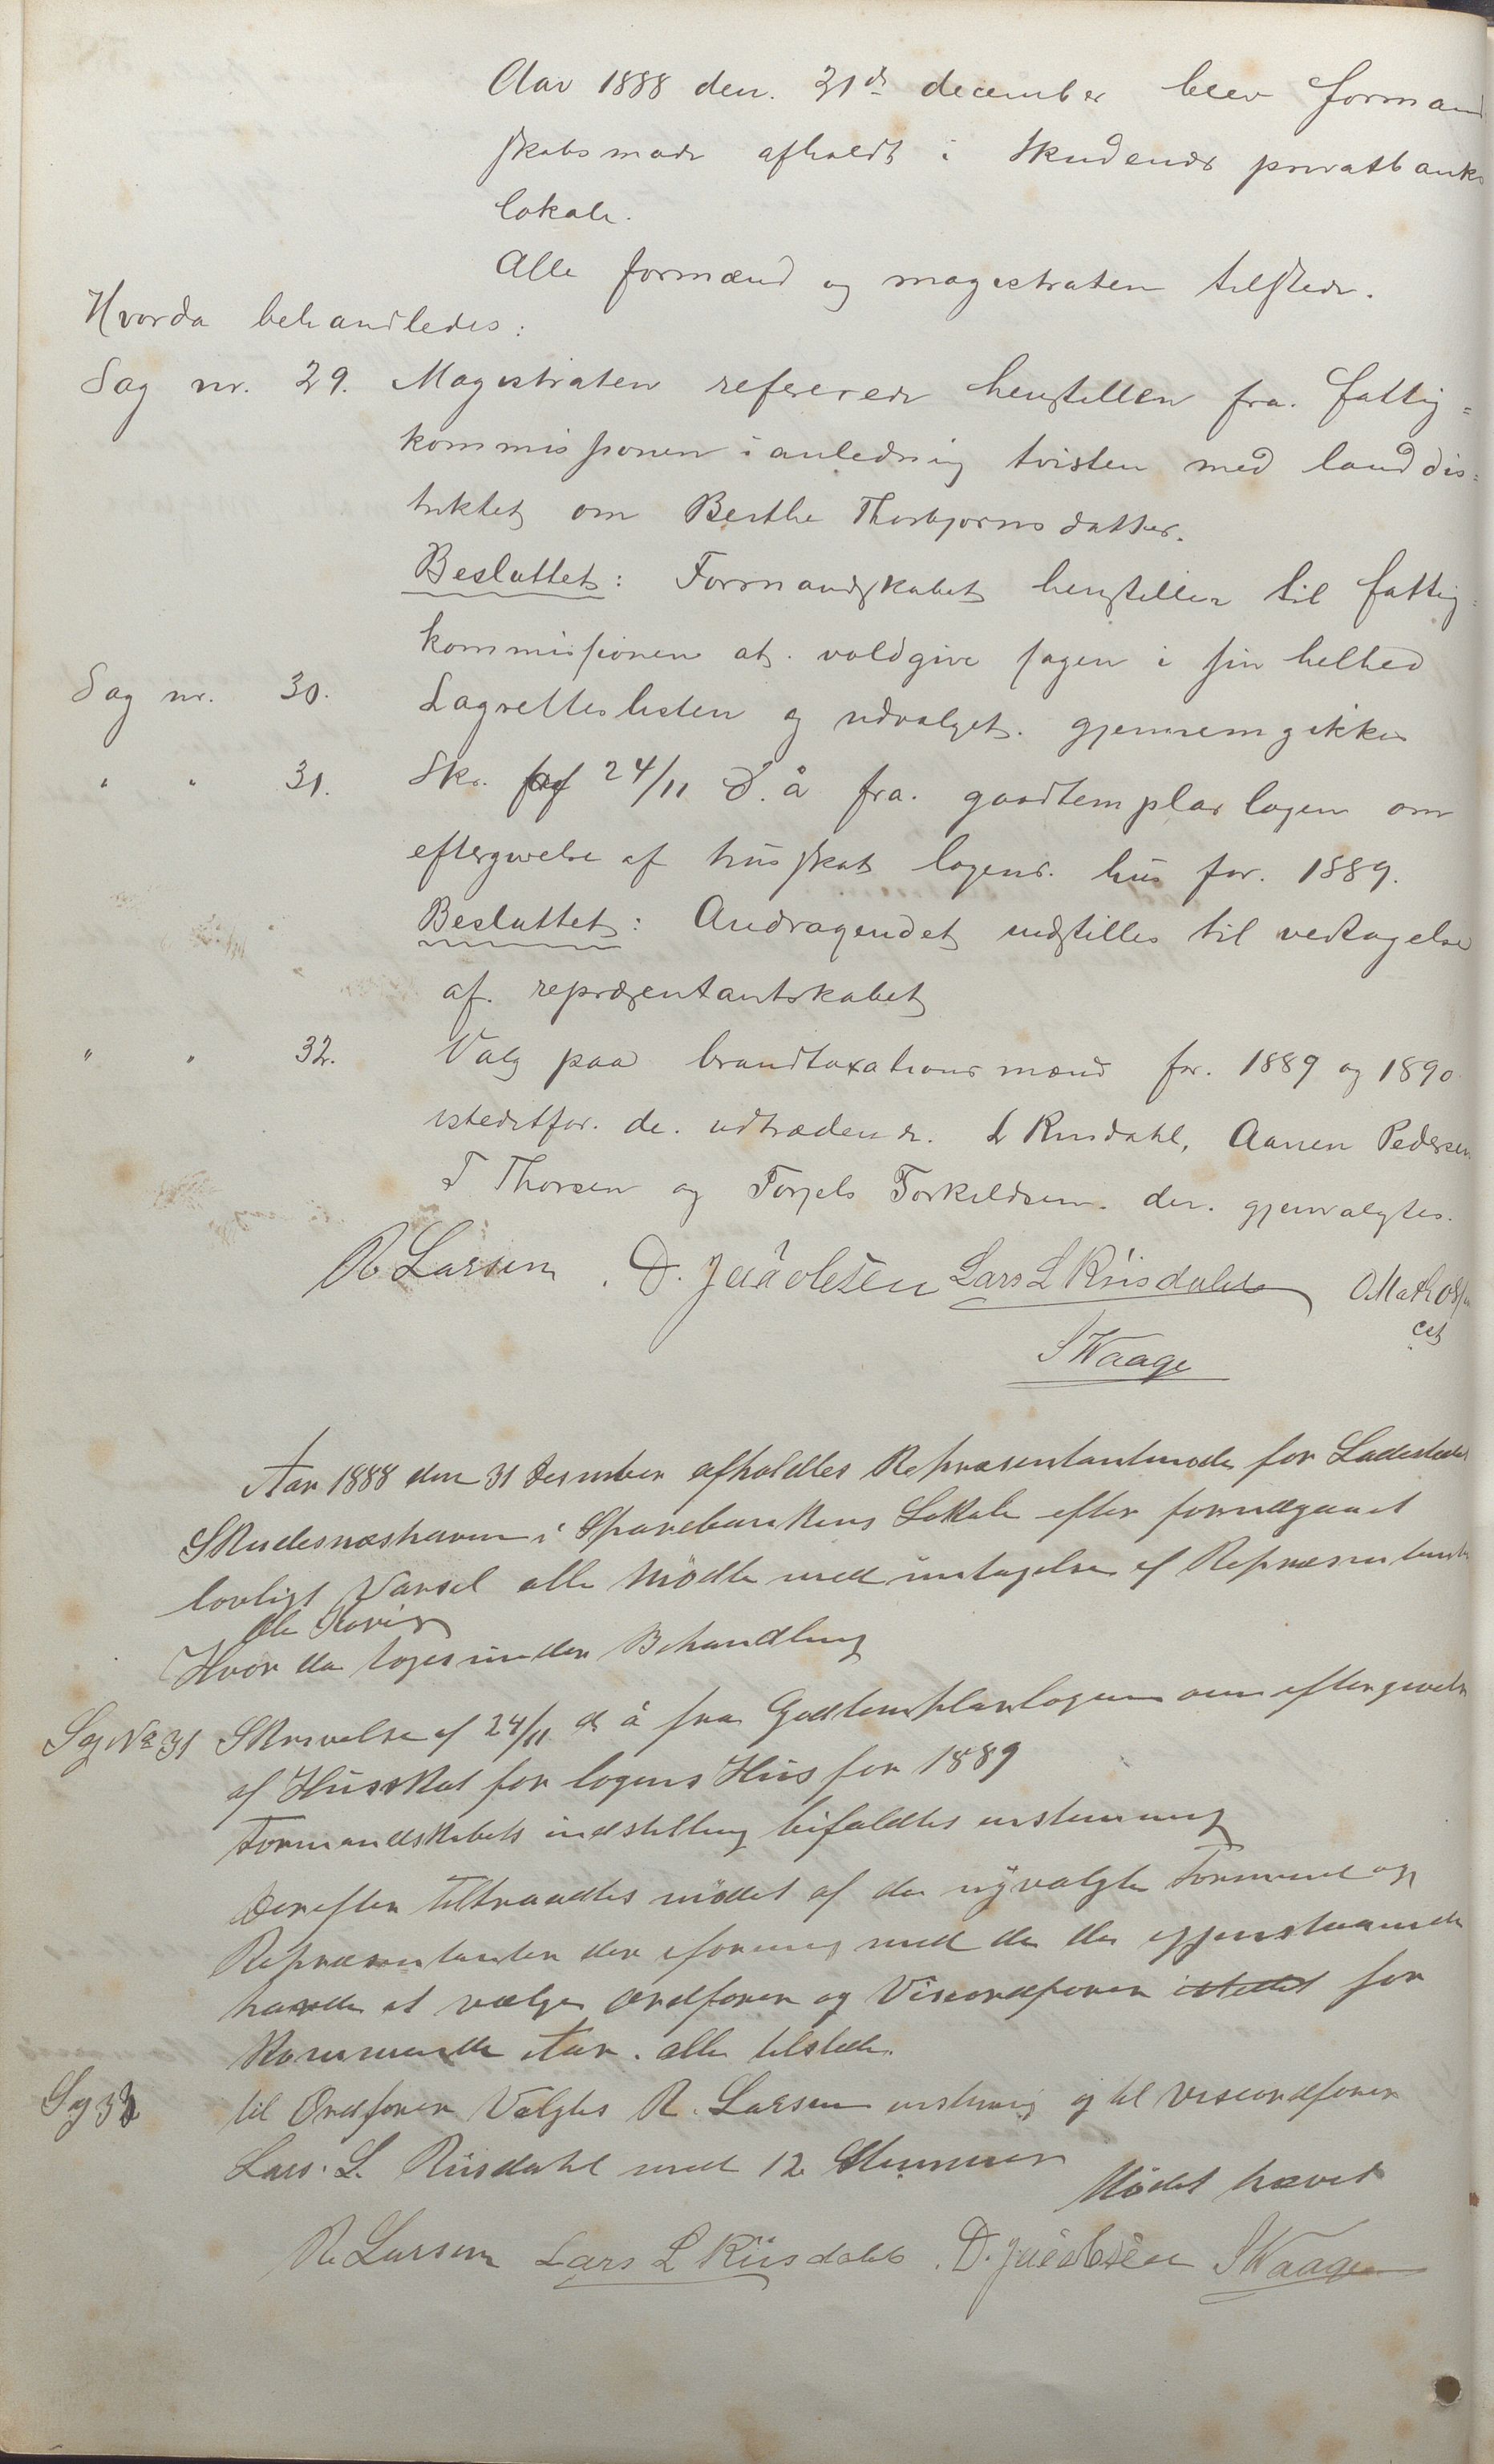 Aar 1888 den. 31de december blev formand
skabsmøde afholdt i Skudenæs privatbanks
lokale.
Alle formænd og magistraten tilstede.
Hvorda behandledes:
Sag nr. 29. Magistraten refererede henstillen fra. fattig=
kommissionen i anledning tvisten med landdis=
triktet om Berthe Thorbjørnsdatter.
Besluttet: Formandskabet henstiller til fattig=
kommissionen at. voldgive sagen i sin helhed
Sag nr. 30. Lagretteslisten og udvalget. gjennemgikkes
" " 31. Skr. af 24/11 d. å fra. goodtemplarlogen om
eftergivelse af husskat logens. hus for. 1889.
Besluttet: Andragendet indstilles til vedtagelse
af. repræsentantskabet
" " 32. Valg paa brandtaxationsmænd for. 1889 og 1890
istedetfor. de. udtrædende. L Riisdahl, Aanen Pedersen
T Thorsen og Torjels Torkildsen. der. gjenvalgtes.
R Larsen . D. Jacobsen Lars L Riisdahl O. Mathias
S Waage
Aar 1888 den 31 Desember afholdtes Repræsentantmøde for Ladestedet
Skudesnæshavn i Sparebankens Lokale efter forudgaaet
lovligt Varsel alle Mødte med untagelse af Repræsentant
Ole
Hvor da toges under Behandling
Sag No 31 Skrivelse af 24/11 d å fra Godtemplarlogen om eftergivelse
af Husskat for logens Hus for 1889
Formandskabets indstilling bifaldtes enstemmig
Derefter tiltraadtes mødet af de nyvalgte Formænd og
Repræsentanter der iforening med de igjenstaaende
havde at vælge Ordfører og Viseordfører istedet for
kommende Aar. alle tilstede.
Sag 33 til Ordfører Valgtes R. Larsen enstemmig og til viseordfører
Lars. L. Riisdahl med 12 Stemmer
Mødet hævet
R Larsen Lars L Riisdahl . D. Jacobsen S Waage